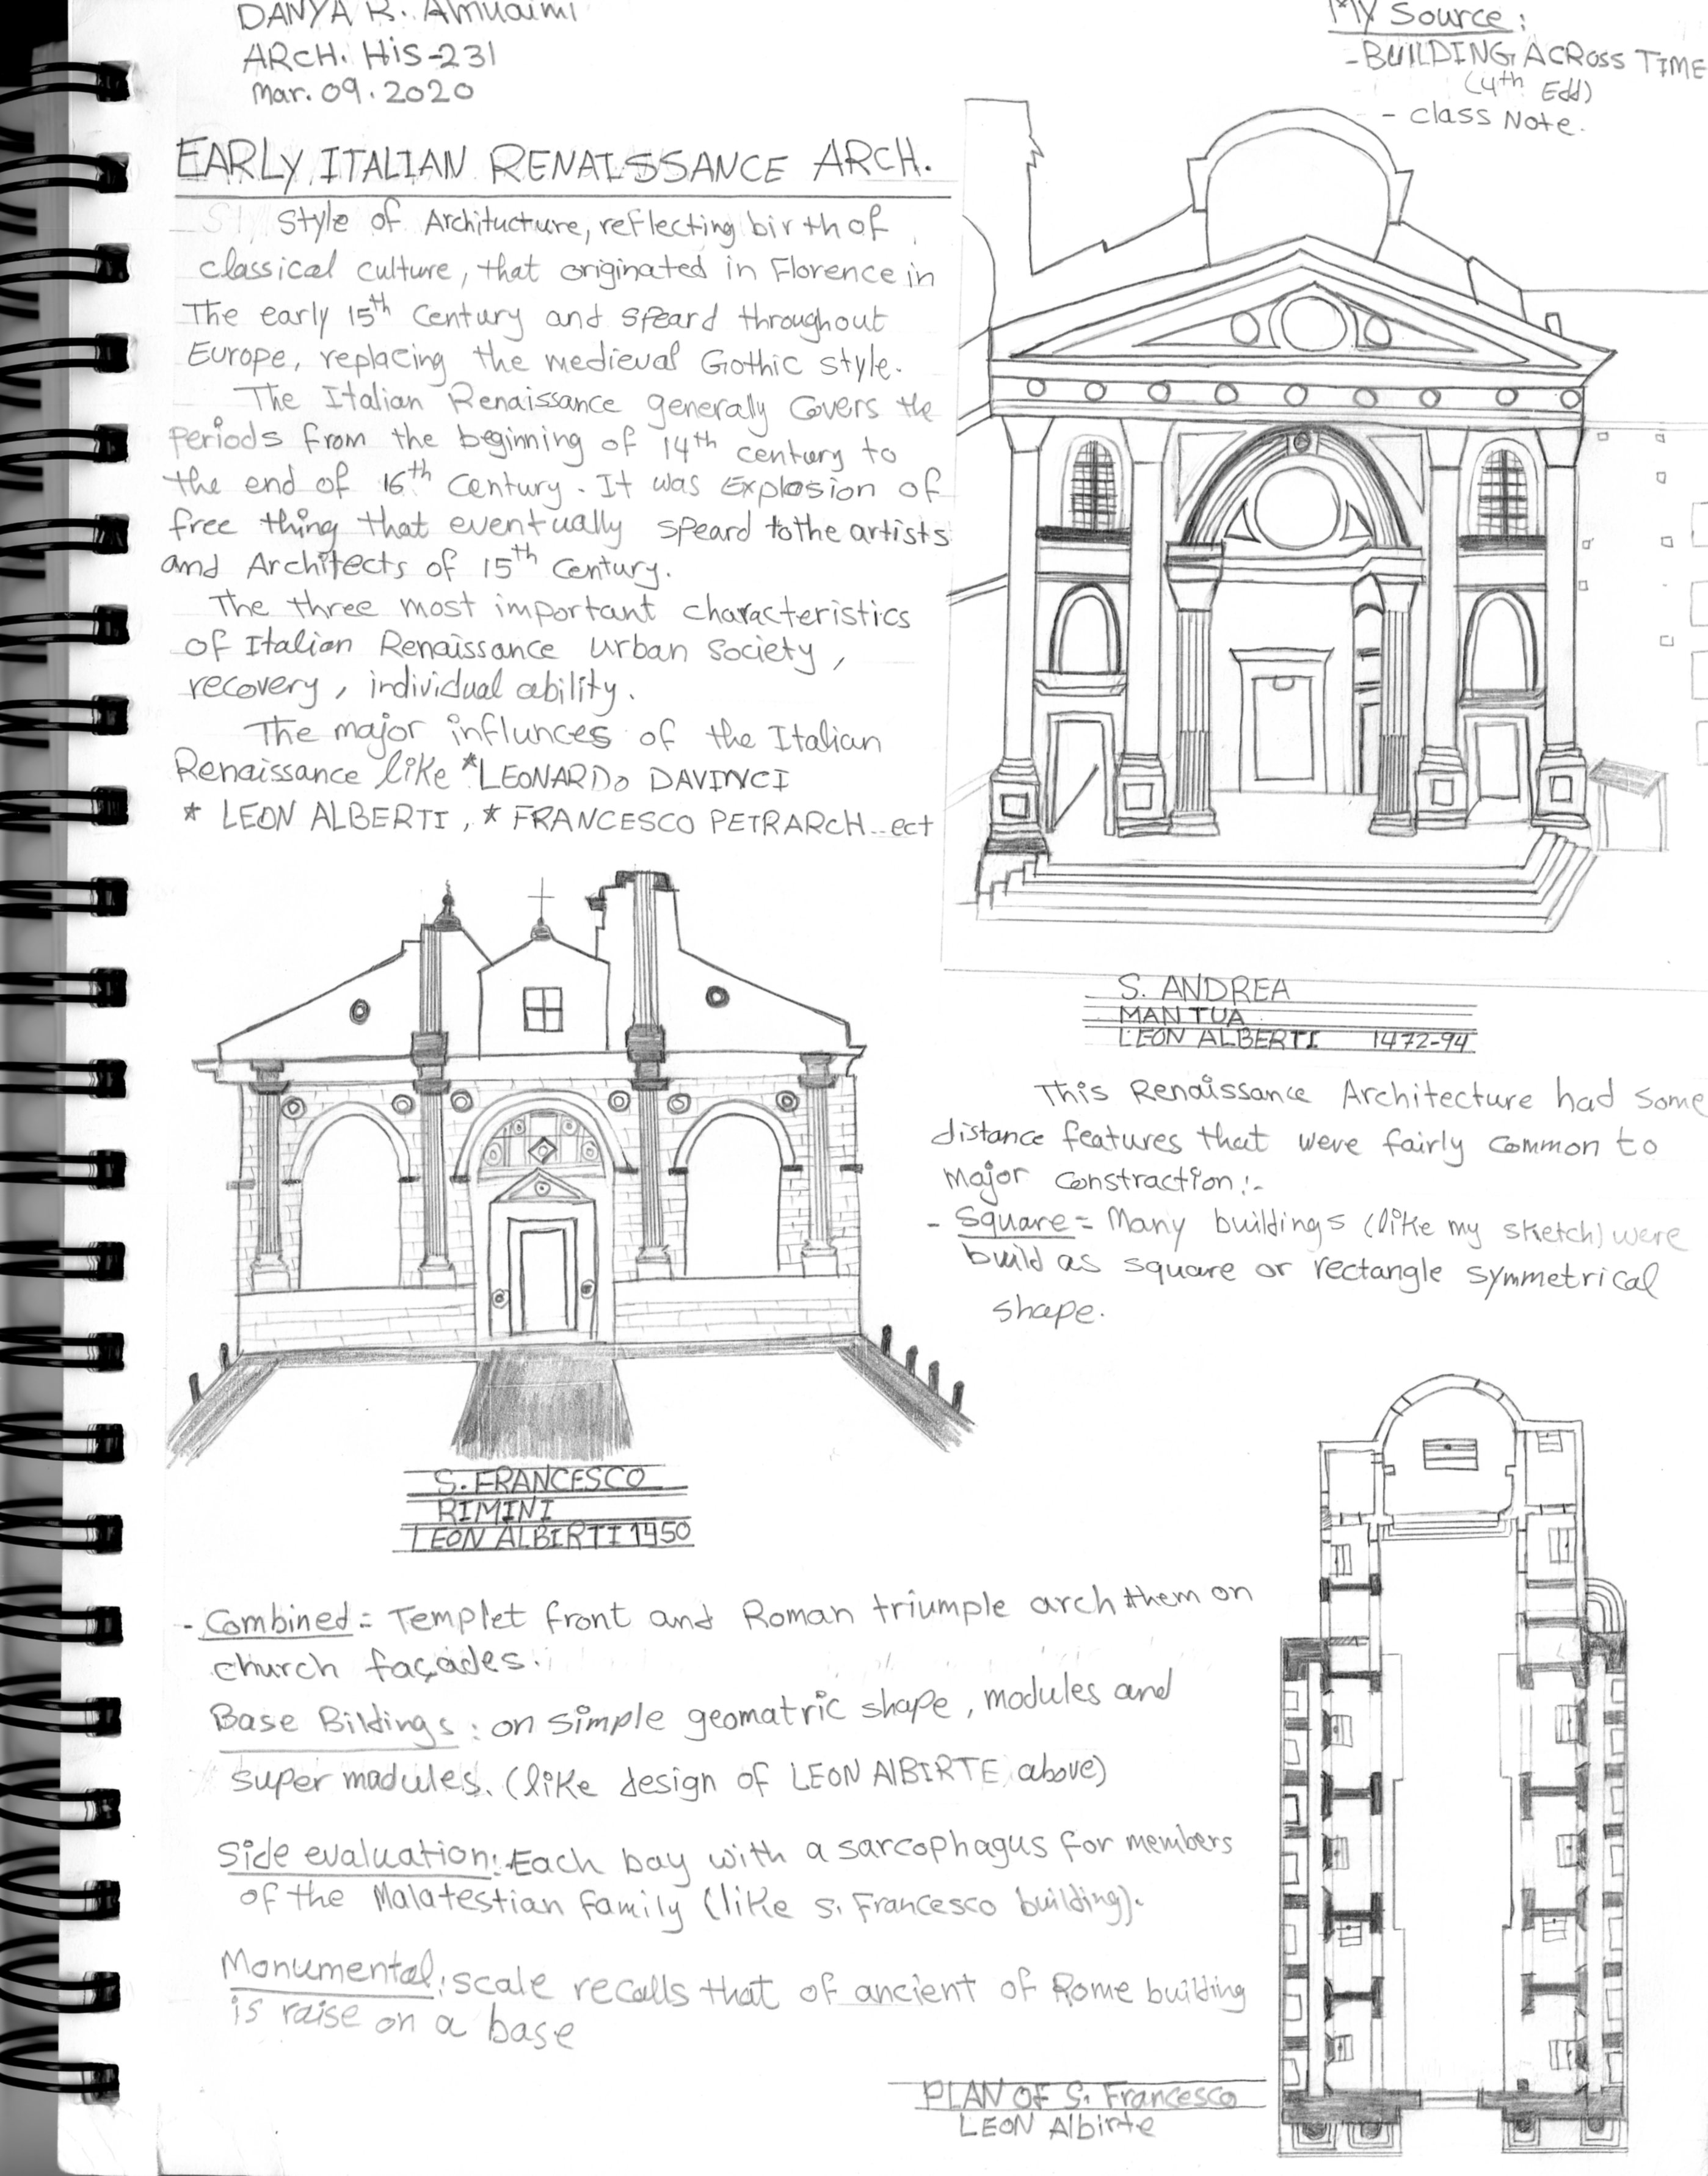 DANYA R. Almuaimi
ARCH. HiS-231
Mar. 09. 2020
My Source:
- BUILDING ACROSS TIME
(4th Edd)
- class Note.
EARLY ITALIAN RENAISSANCE ARCH.
Style of Architucture, reflecting birth of
classical culture, that originated in Florence in
The early 15th Century and speard throughout
Europe, replacing the medieval Gothic style.
The Italian Renaissance generally Covers the
Periods from the beginning of 14th century to
the end of 16th Century. It was Explosion of
free thing that eventually speard to the artists
and Architects of 15th Century.
The three most important characteristics
of Italian Renaissance Urban Society,
recovery, individual ability.
The major influnces of the Italian
Renaissance like *LEONARDO DAVINCI
* LEON ALBERTI, * FRANCESCO PETRARCH...ect
S. ANDREA
MANTUA
LEON ALBERTI 1472-94
This Renaissance Architecture had some
distance features that were fairly common to
major constraction:-
- Square = Many buildings (like my sketch) were
build as square or rectangle symmetrical
shape.
S. FRANCESCO
RIMINI
LEON ALBIRTI 1450
- Combined = Templet front and Roman triumple arch them on
church façades.
Base Bildings: on simple geomatric shape, modules and
super madules. (like design of LEON AlBIRTE above)
Side evaluation: Each bay with a sarcophagus for members
of the Malatestian family (like S. Francesco building).
Monumental: scale recalls that of ancient of Rome building
is raise on a base
PLAN OF S. Francesco
LEON Albirte